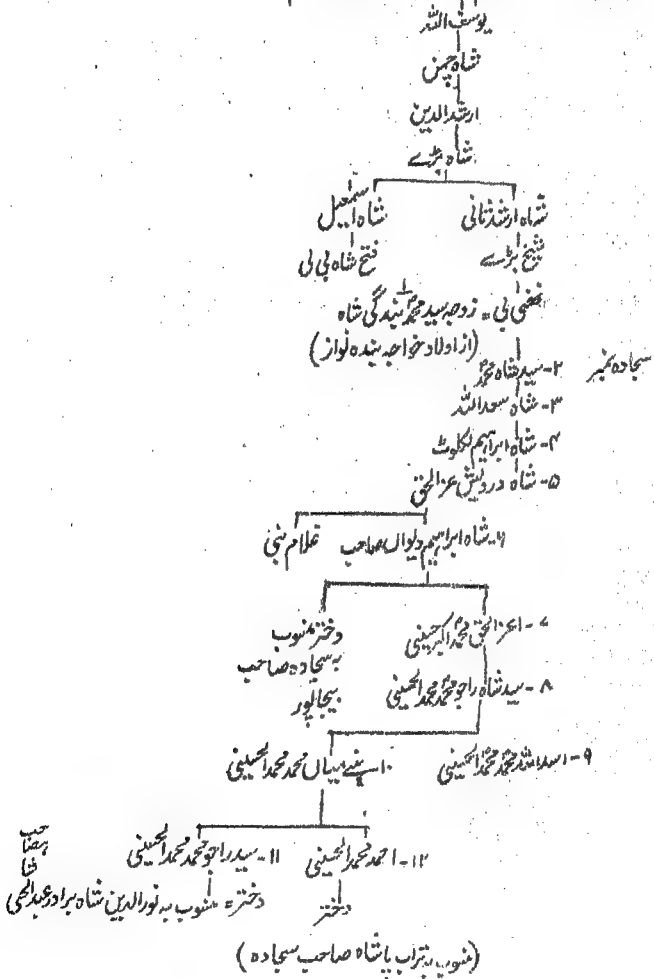 یوسف اللہ
شاہ چمن
ارشد الدین
شاہ بڑے
شاہ ارشد ثانی
شاہ اسمعیل
شیخ بڑے
فتح شاہ بی لی
ننھی بی = زوجہ سید محمدؐ بندگی شاہ
(از اولاد خواجہ بندہ نواز)
سجادہ نمبر
۲- سید شاہ محمدؐ
۳- شاہ سعد اللہ
۴- شاہ ابراہیم لکلوٹ
۵- شاہ درویش عز الحق
۶- شاہ ابراہیم دیوان صاحب
غلام نبی
۷- اعز الحق محمد اکبر حسینی
دختر منسوب
بہ سجادہ صاحب
بیجاپور
۸- سید شاہ راجو محمد محمد الحسینی
۹- اسد اللہ محمد محمد الحسینی
۱۰- میاں محمد محمد الحسینی
۱۱- سید راجو محمد محمد الحسینی
۱۲- احمد محمد الحسینی
دختر = منسوب بہ نور الدین شاہ برادر عبد الحی
شاہ صاحب
دختر
(منسوب بہ تراب پاشاہ صاحب سجادہ)